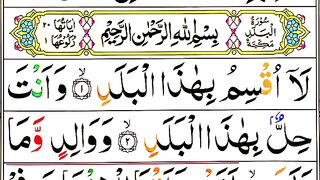 سُوْرَةُ الْبَلَدِ مَكِّيَّةٌ
بِسْمِ اللهِ الرَّحْمٰنِ الرَّحِيْمِ
اٰيَاتُهَا ٢٠ رُكُوْعُهَا ١
لَاۤ اُقْسِمُ بِهٰذَا الْبَلَدِ ۙ﴿١﴾ وَاَنْتَ
حِلٌّۢ بِهٰذَا الْبَلَدِ ۙ﴿٢﴾ وَوَالِدٍ وَّمَا